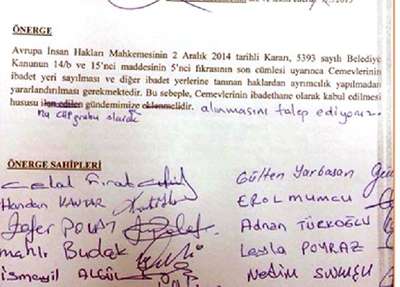 ÖNERGE
Avrupa İnsan Hakları Mahkemesinin 2 Aralık 2014 tarihli Kararı, 5393 sayılı Belediye
Kanunun 14/b ve 15'nci maddesinin 5'nci fıkrasının son cümlesi uyarınca Cemevlerinin
ibadet yeri sayılması ve diğer ibadet yerlerine tanınan haklardan ayrımcılık yapılmadan
yararlandırılması gerekmektedir. Bu sebeple, Cemevlerinin ibadethane olarak kabul edilmesi
hususu ilan edilen gündemimize eklenmelidir. alınmasını talep ediyoruz.
olarak
ÖNERGE SAHİPLERİ
Celal Fırat Gülten Yarbasan
Handan KANTAR EROL MUMCU
Zafer POLAT Adnan TÜRKOĞLU
Budak Leyla POYRAZ
İsmayil ALGÜL Nedim